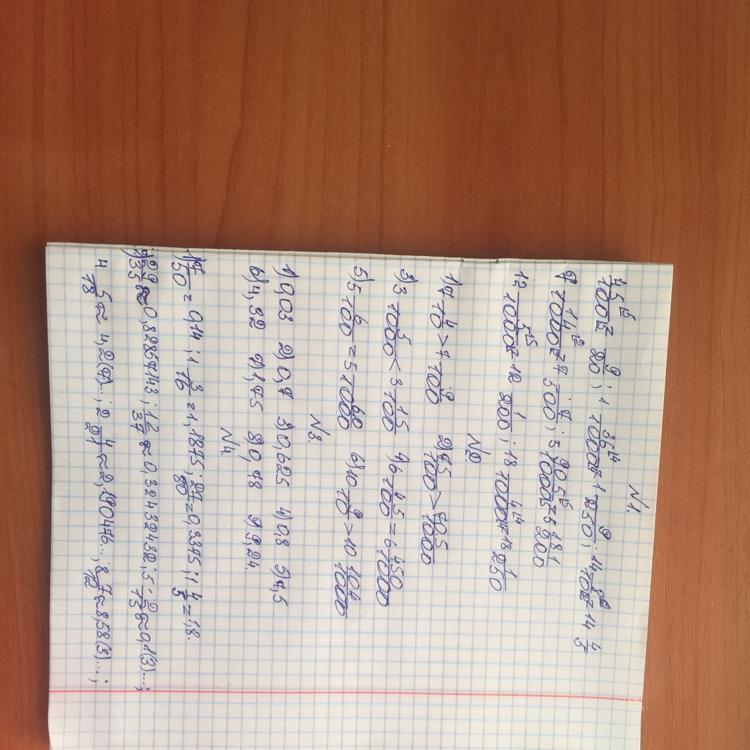 N1.
45/100 = 9/20; 1 36/1000 = 1 9/250; 14 8/10 = 14 4/5
7 14/1000 = 7 7/500; 5 905/1000 = 5 181/200
12 5/1000 = 12 1/200; 18 4/1000 = 18 1/250
N2
1) 7 4/10 > 7 9/100 2) 45/100 > 405/1000
3) 3 5/1000 < 3 15/100 4) 6 45/100 = 6 450/1000
5) 5 6/100 = 5 60/1000 6) 10 9/10 > 10 104/1000
N3.
1) 0,03 2) 0,7 3) 0,625 4) 0,8 5) 4,5
6) 4,32 7) 1,75 8) 0,78 9) 3,24
N4
1) 7/50 = 0,14; 1 3/16 = 1,1875; 27/80 = 0,3375; 1 4/5 = 1,8.
2) 29/35 ≈ 0,82857143; 12/37 ≈ 0,32432432; 5 2/15 ≈ 0,1(3)...;
4 5/18 ≈ 4,2(7)...; 2 4/21 ≈ 2,190476...; 8 7/12 ≈ 8,58(3)...;